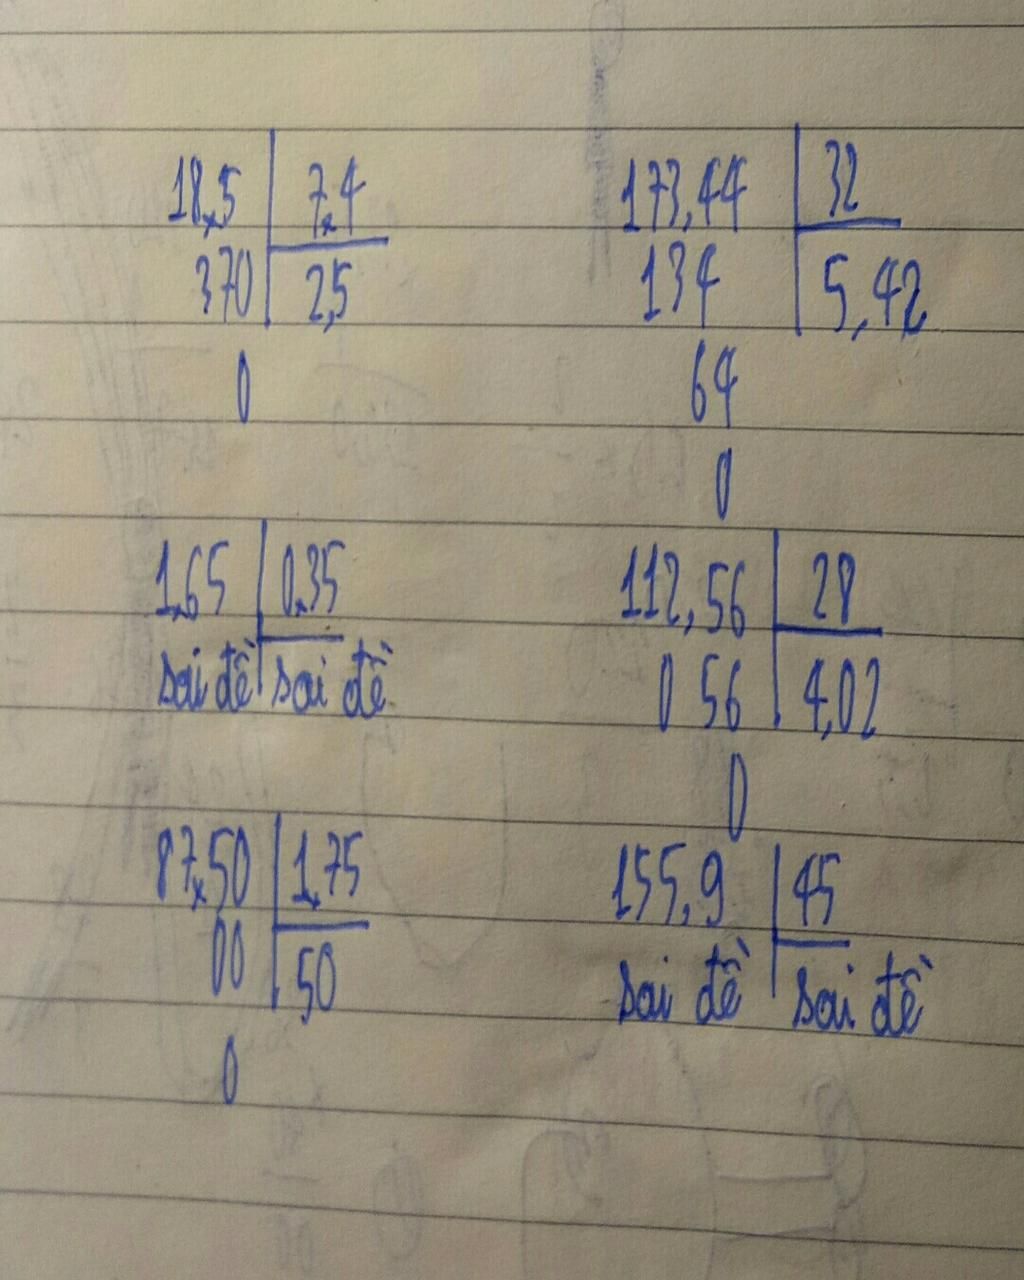 18,5 7,4
370 2,5
0
173,44 32
134 5,42
64
0
1,65 0,35
sai đề sai đề
112,56 28
0 56 4,02
0
87,50 1,75
00 50
0
155,9 45
sai đề sai đề